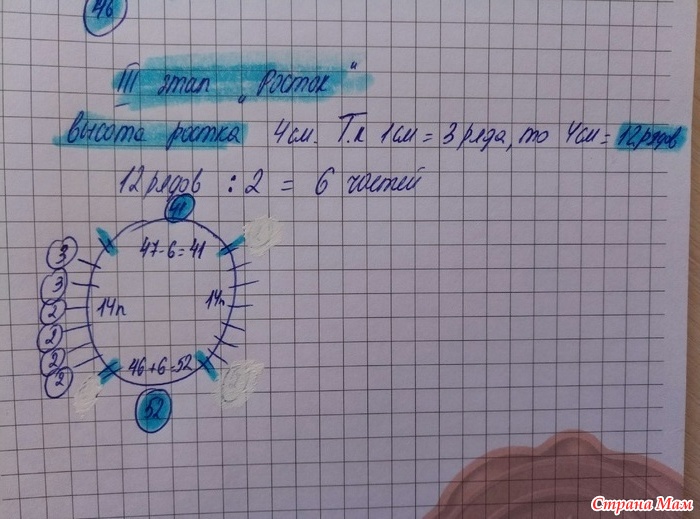 46
III этап „Росток"
Высота ростка 4 см. Т.к 1 см = 3 ряда, то 4 см = 12 рядов
12 рядов : 2 = 6 частей
41
47-6=41
3
3
2
2
2
2
14п
14п
46+6=52
52
Страна Мам